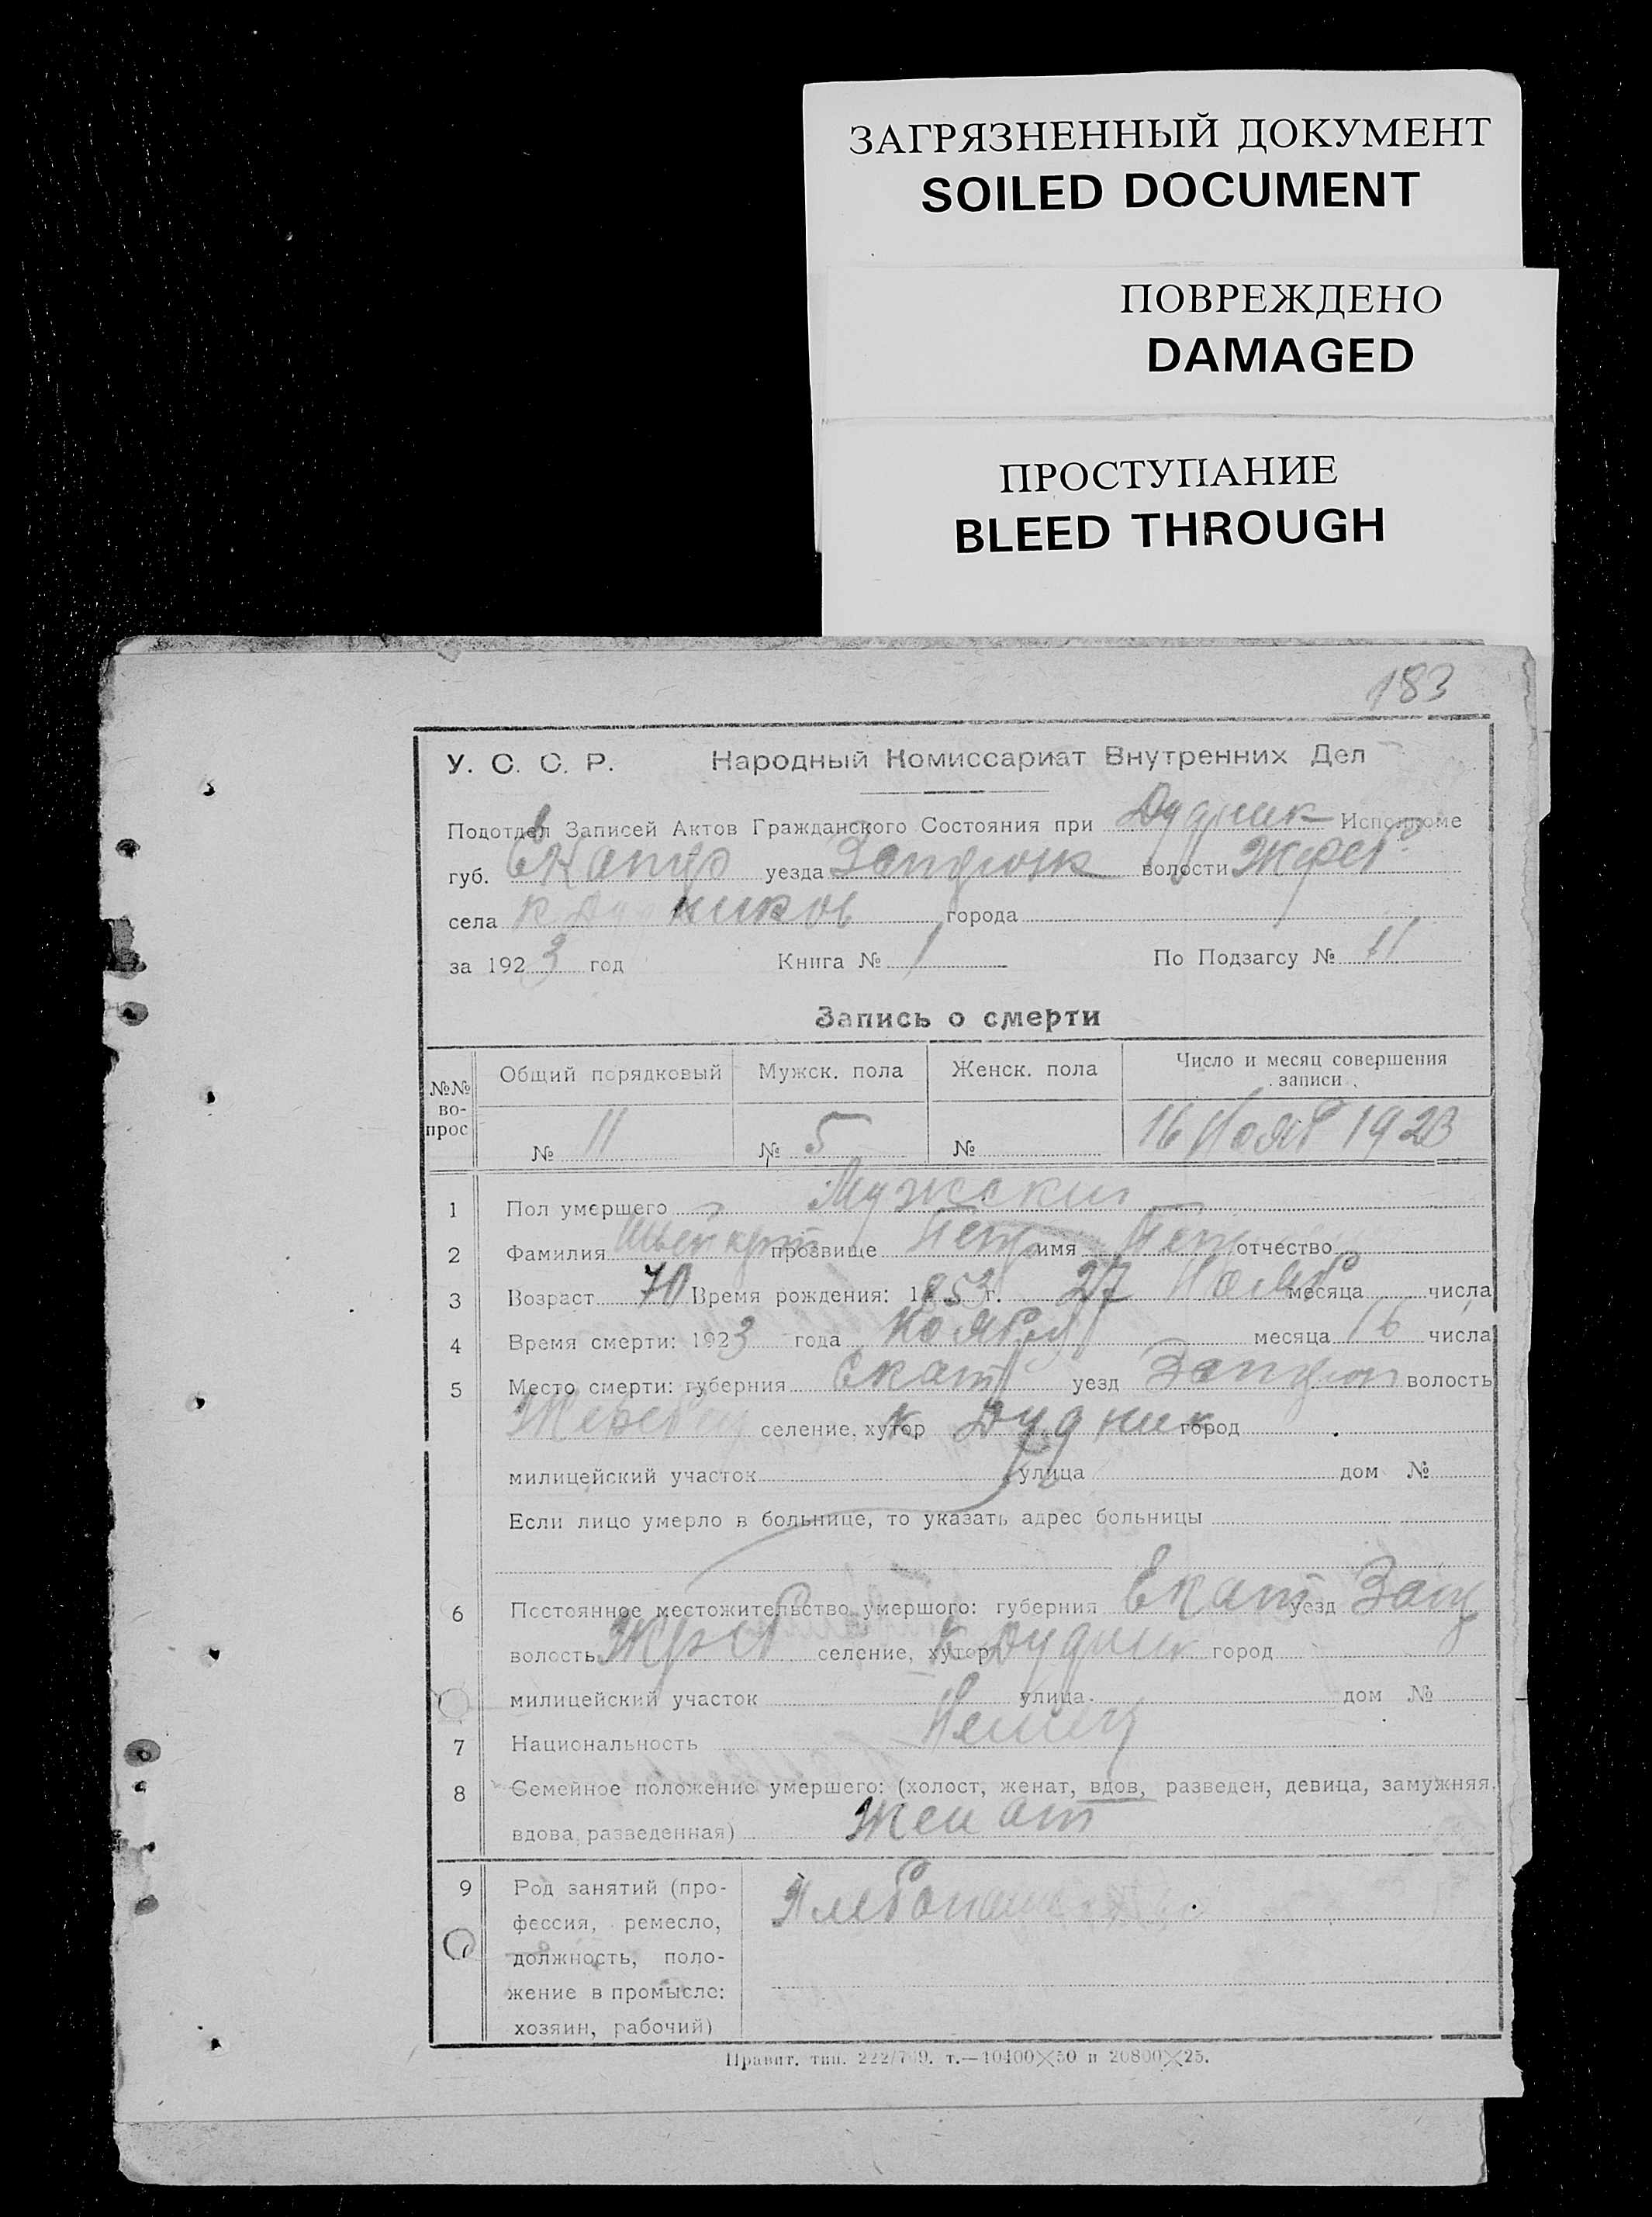 ЗАГРЯЗНЕННЫЙ ДОКУМЕНТ
SOILED DOCUMENT
ПОВРЕЖДЕНО
DAMAGED
ПРОСТУПАНИЕ
BLEED THROUGH
183
У. С. С. Р. Народный Комиссариат Внутренних Дел
Подотдел Записей Актов Гражданского Состояния при Дудник Исполкоме
губ. уезда волости
села города
за 1923 год Книга № 1 По Подзагсу № 11
Запись о смерти
№№ во-прос Общий порядковый Мужск. пола Женск. пола Число и месяц совершения записи
№ 11 № 5 № 16 Нояб 1923
1 Пол умершего Мужски
2 Фамилия прозвище имя отчество
3 Возраст 70 Время рождения: 1853 г. 27 Нояб месяца числа
4 Время смерти: 1923 года Ноября месяца 16 числа
5 Место смерти: губерния Екат уезд волость
селение, хутор к Дудник город
милицейский участок улица дом №
Если лицо умерло в больнице, то указать адрес больницы
6 Постоянное местожительство умершого: губерния Екат уезд Зап
волость селение, хутор к Дудник город
милицейский участок улица дом №
7 Национальность Немец
8 Семейное положение умершего: (холост, женат, вдов, разведен, девица, замужняя,
вдова, разведенная) Женат
9 Род занятий (про-
фессия, ремесло,
должность, поло-
жение в промысле:
хозяин, рабочий)
Правит. тип. т.—10400×50 и 20800×25.